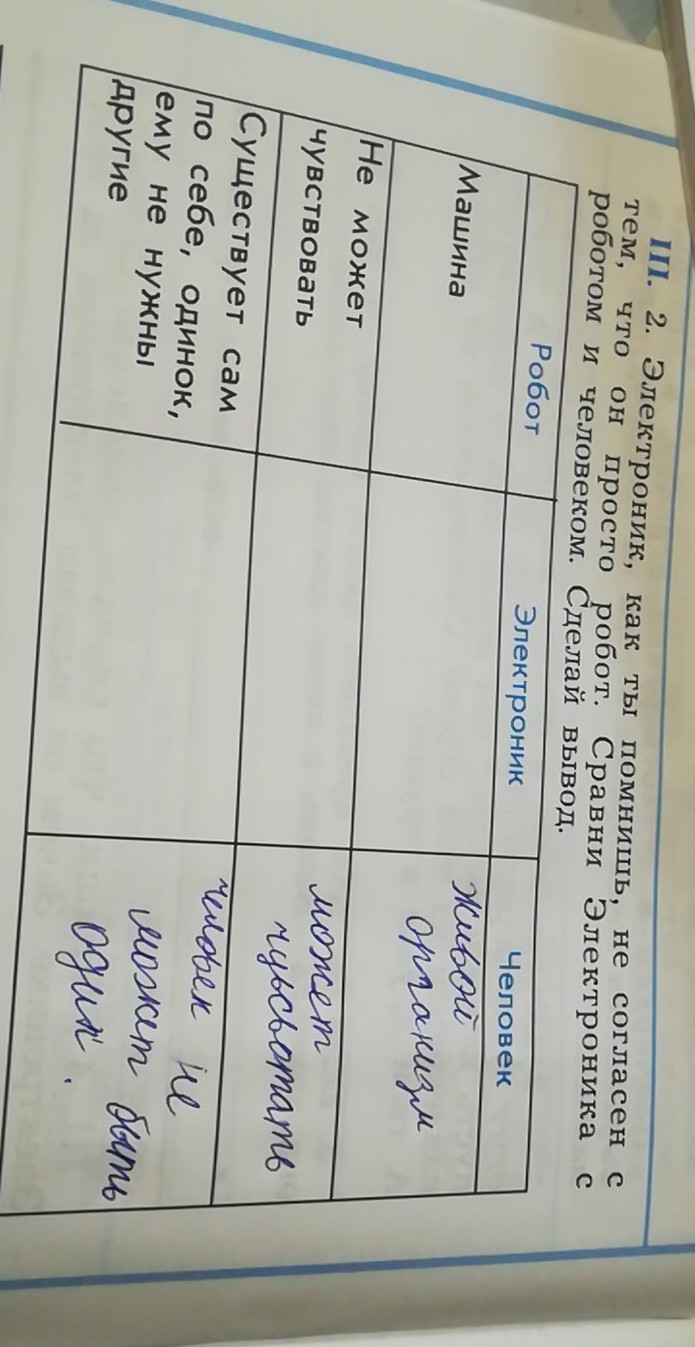 III. 2. Электроник, как ты помнишь, не согласен с
тем, что он просто робот. Сравни Электроника с
роботом и человеком. Сделай вывод.
Робот
Электроник
Человек
Машина
живой
организм
Не может
чувствовать
может
чувсьвтать
Существует сам
по себе, одинок,
ему не нужны
другие
человек не
может быть
один.